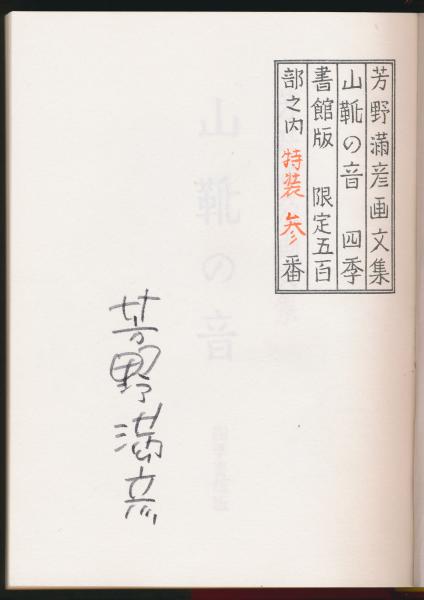 芳野満彦画文集
山靴の音 四季
書館版 限定五百
部之内 特装 参 番
芳野満彦
山靴の音